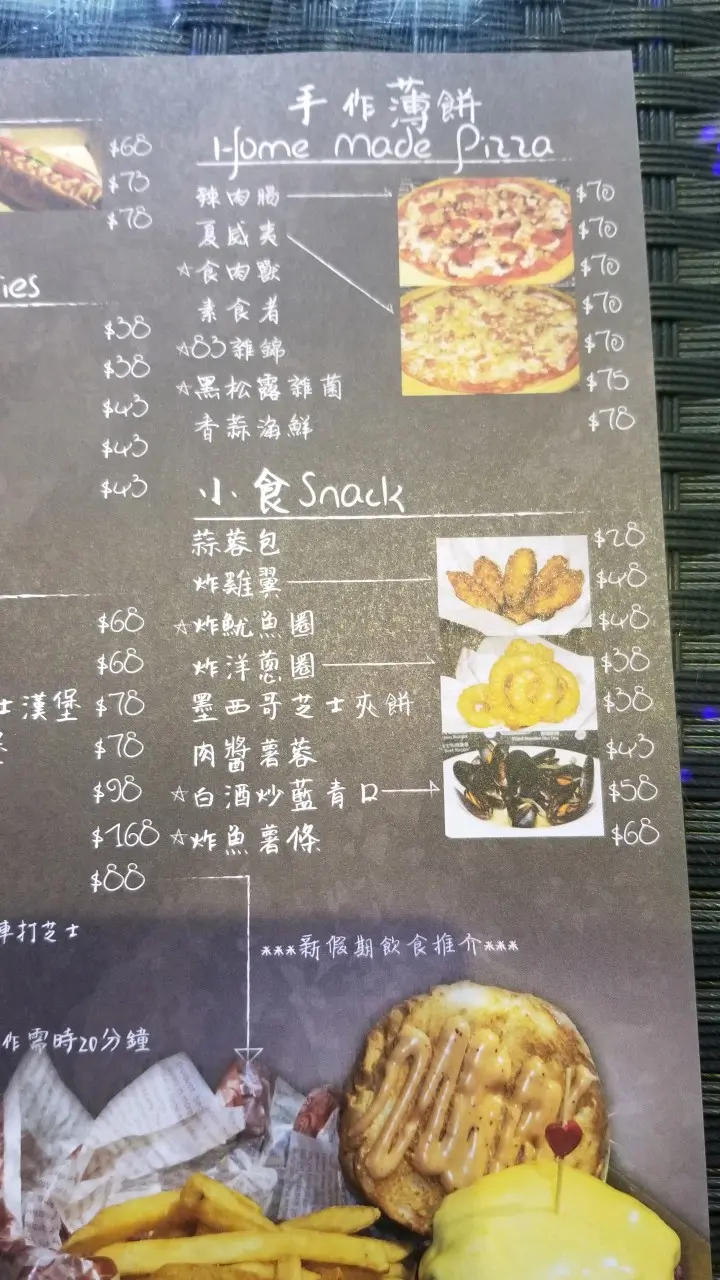 $68
$73
$78
ies
$38
$38
$43
$43
$43
$68
$68
士漢堡 $78
$78
$98
$168
$88
車打芝士
作需時20分鐘
手作薄餅
Home made Pizza
辣肉腸 $70
夏威夷 $70
☆食肉獸 $70
素食者 $70
☆83雜錦 $70
☆黑松露雜菌 $75
香蒜海鮮 $78
小食 Snack
蒜蓉包 $28
炸雞翼 $48
☆炸魷魚圈 $48
炸洋蔥圈 $38
墨西哥芝士夾餅 $38
肉醬薯蓉 $43
☆白酒炒藍青口 $58
☆炸魚薯條 $68
***新假期飲食推介***